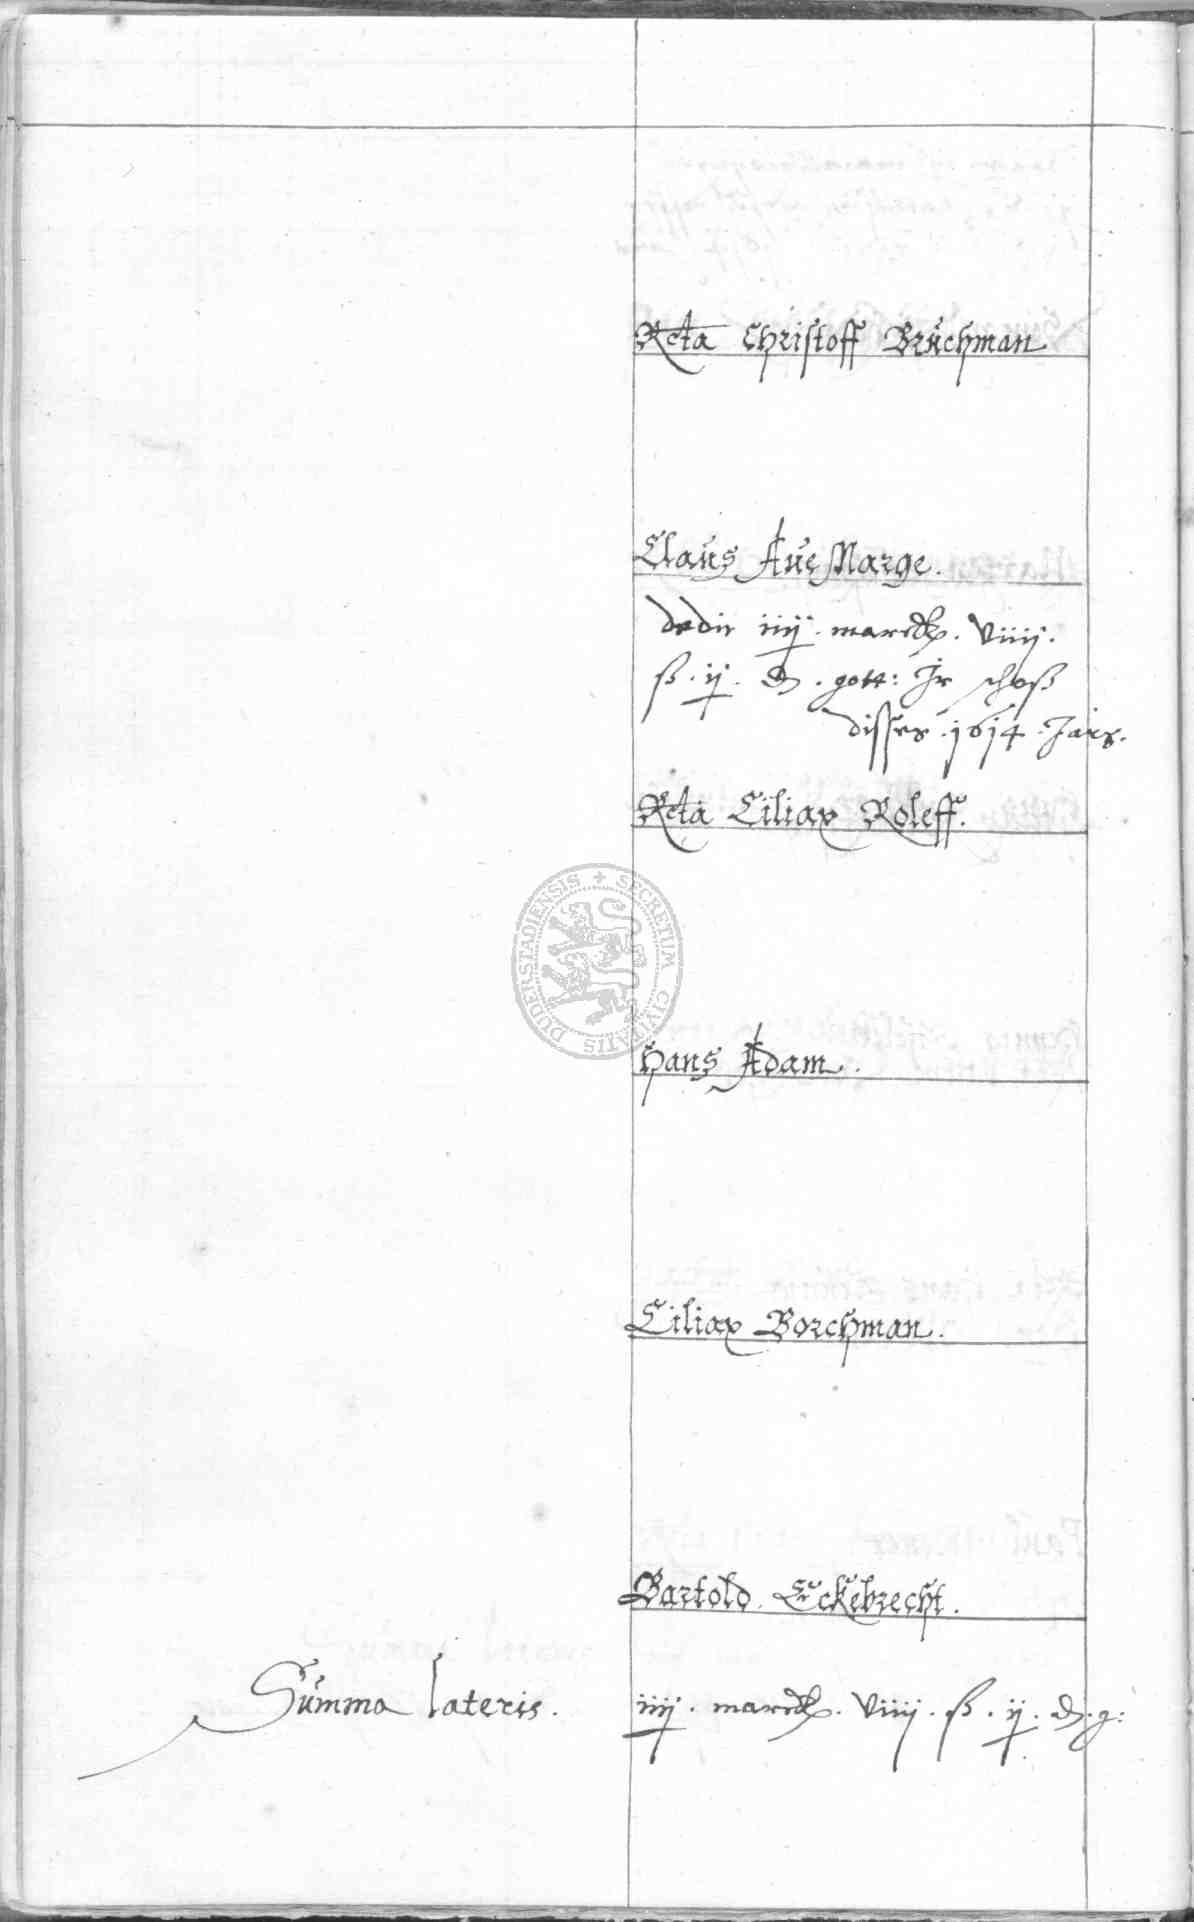 Rcta Christoff Bruchman
Claus Aue Marge.
dedit iiij. marck. viiij.
ß. ij. d. gott: Jr schoß
disses. 1614. Jars.
Rcta Ciliax Roleff.
SECRETUM CIVITATIS DUDERSTADIENSIS
Hans Adam.
Ciliax Borchman.
Bartold Eckebrecht.
Summa lateris. iiij. marck. viiij. ß. ij. d. g: